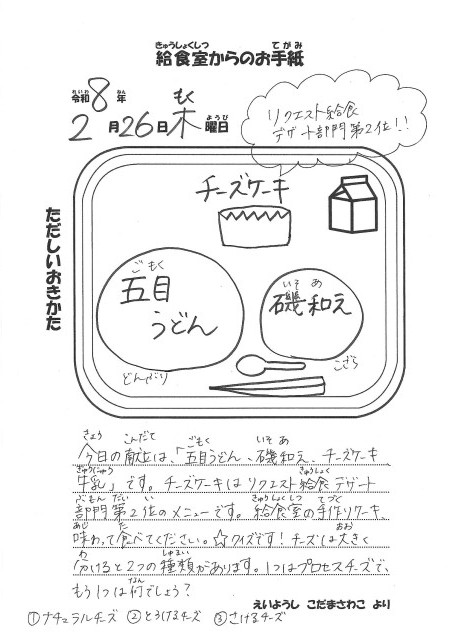 きゅうしょくしつ てがみ
給食室からのお手紙
れいわ ねん
令和8年
もく
2月26日木曜日
ようび
リクエスト給食
デザート部門第2位!!
チーズケーキ
ただしいおきかた
ごもく
五目
うどん
どんぶり
いそ あ
磯和え
こざら
きょう こんだて ごもく いそ あ
今日の献立は、「五目うどん、磯和え、チーズケーキ、
ぎゅうにゅう きゅうしょく
牛乳」です。チーズケーキはリクエスト給食デザート
ぶもん だい い きゅうしょくしつ てづく
部門第2位のメニューです。給食室の手作りケーキ、
あじ た おお
味わって食べてください。☆クイズです!チーズは大きく
わ しゅるい
分けると2つの種類があります。1つはプロセスチーズで、
なん
もう1つは何でしょう?
えいようし こだまさわこ より
①ナチュラルチーズ ②とろけるチーズ ③さけるチーズ